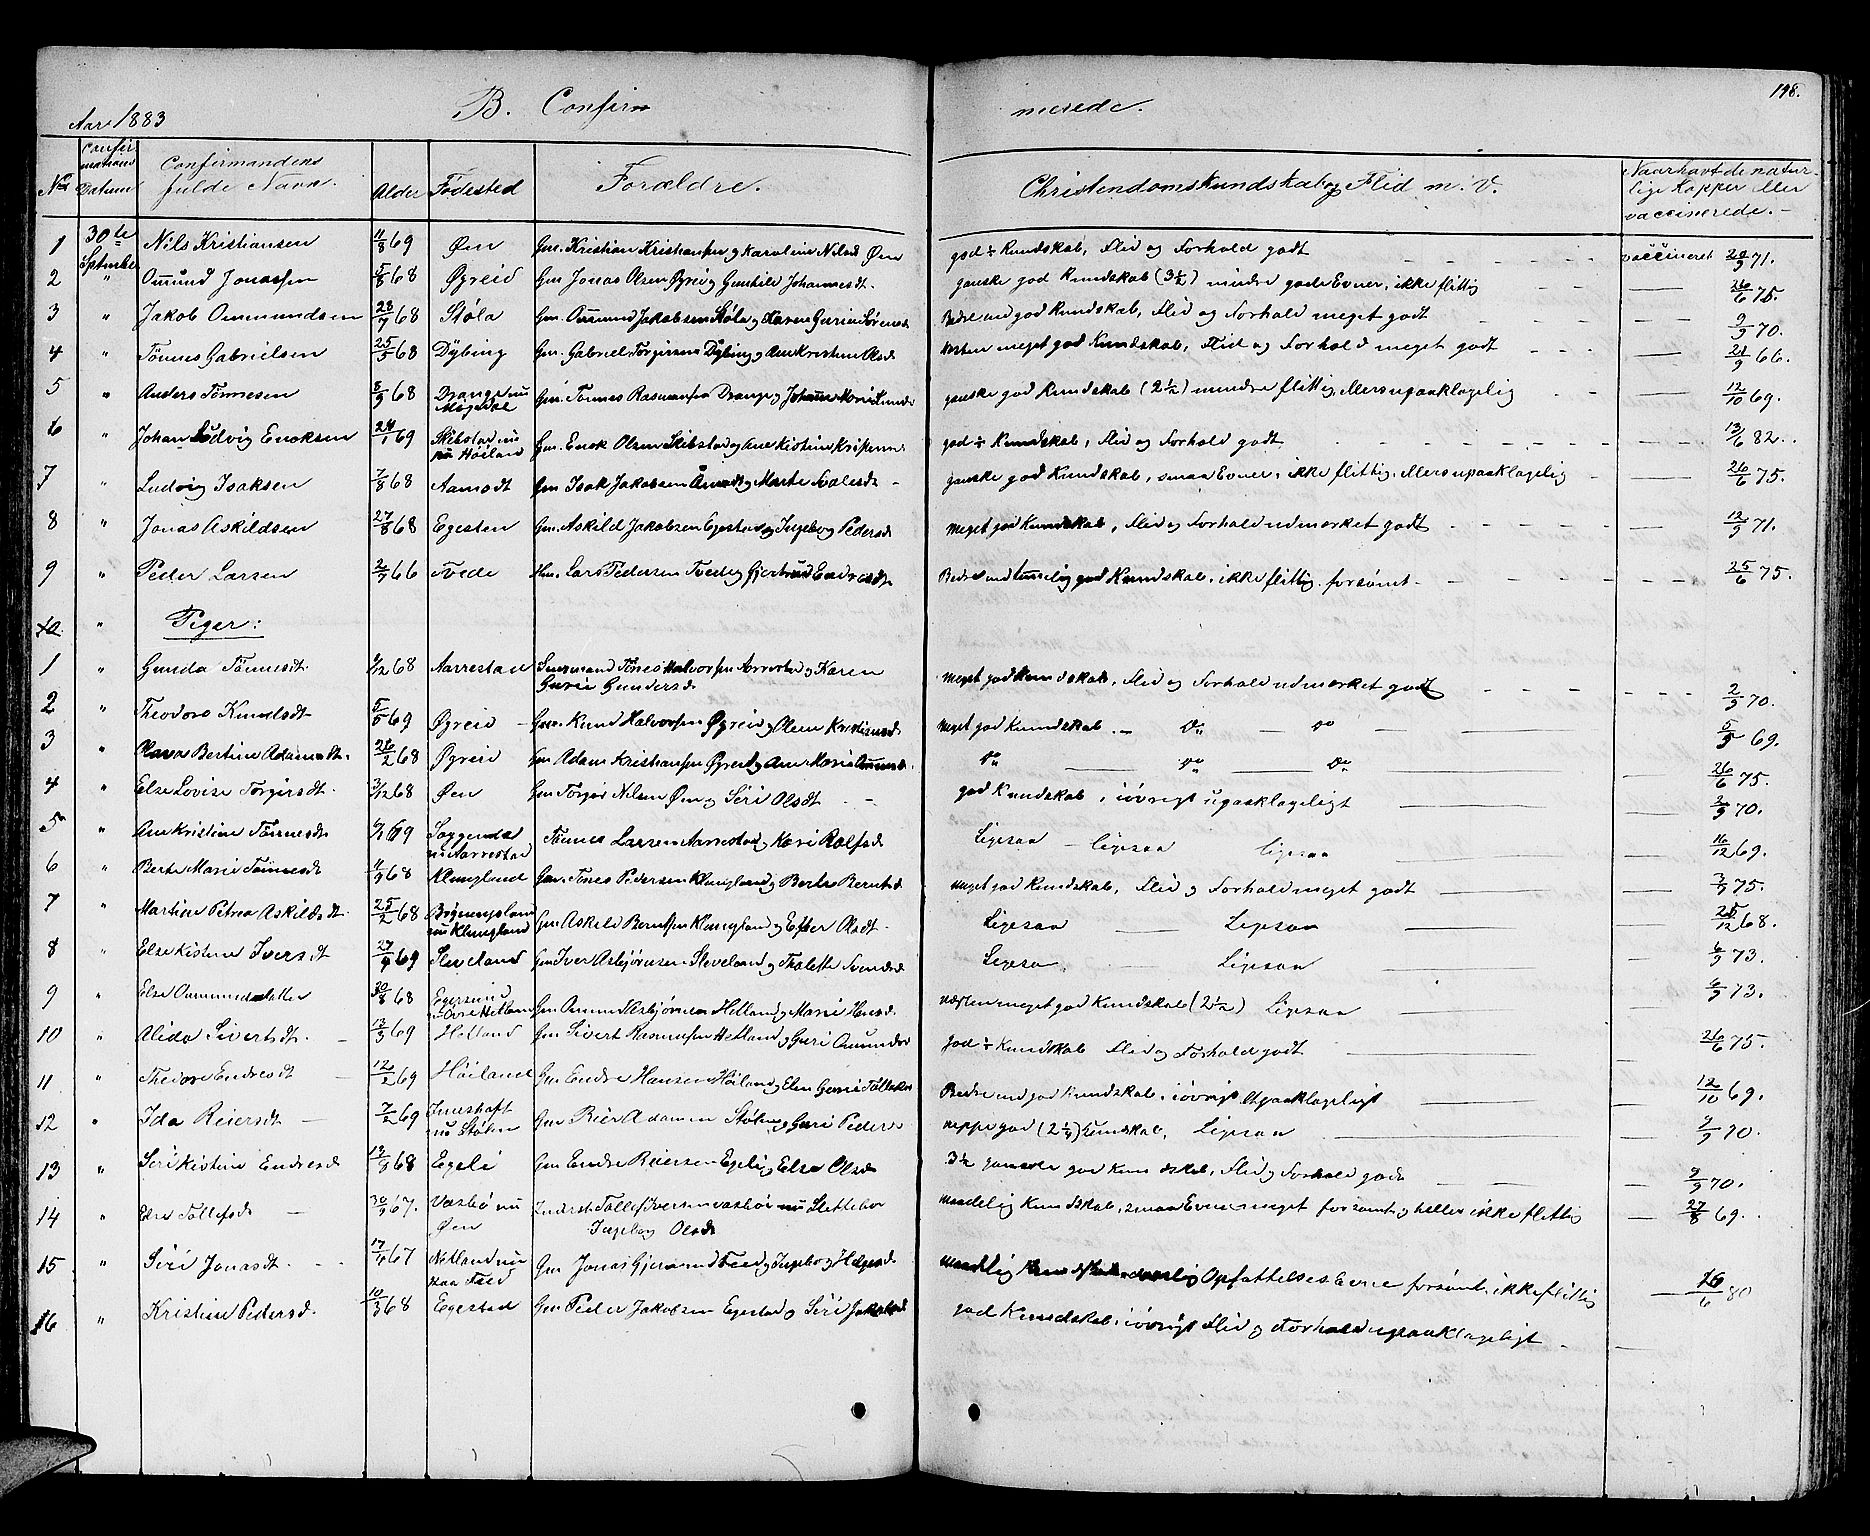 198.
Aar 1883 B. Confir merede.
No Confirmations Datum Confirmandens fulde Navn. Alder Fødested Forældre. Christendomskundskab og Flid m. V. Naar havt de naturlige Kopper eller vaccinerede.
1 30te September Nils Kristiansen 11/8 69 Øen Gm. Kristian Kristiansen og Karoline Nilsd Øen god ÷ Kundskab, Flid og Forhold godt vaccineret 20/9 71.
2 " Omund Jonassen 5/8 68 Øgreid Gm Jonas Olsen Øgreid og Gunhild Johannesdt. ganske god Kundskab (3½) mindre gode Evner, ikke flittig — 26/6 75.
3 " Jakob Ommundsen 28/7 68 Støla Gm. Omund Jakobsen Støla og Karen Gurine Sørensd Bedre end god Kundskab, Flid og Forhold meget godt — 9/9 70.
4 " Tönnes Gabrielsen 25/5 68 Dybing Gm. Gabriel Torgersen Dybing og Ane Kristine Olsd næsten meget god Kundskab, Flid og Forhold meget godt — 21/9 66.
5 " Anders Tönnesen 8/9 68 Drange nu Mögedal Gm. Tönnes Rasmussen Drange og Johanne Marie ganske god Kundskab (2½) mindre flittig, ellers upaaklagelig — 12/10 69.
6 " Johan Ludvig Enoksen 24/1 69 Skibstad nu paa Höiland Gm. Enok Olsen Skibstad og Ane Kistine god ÷ Kundskab, Flid og Forhold godt — 13/6 82.
7 " Ludvig Isaksen 7/8 68 Aamodt Gm Isak Jakobsen Aamodt og Marte ganske god Kundskab, smaa Evner, ikke flittig, ellers upaaklagelig — 26/6 75.
8 " Jonas Askildsen 27/8 68 Egesten Gm. Askild Jakobsen Egestad og Ingeborg Pedersd meget god Kundskab, Flid og Forhold udmærket godt — 12/9 71.
9 " Peder Larsen 2/7 66 Tvede Gm. Lars Pedersen Tvede og Gjertrud Endresdt. Bedre end god Kundskab, ikke flittig, forsömt — 25/6 75.
10. " Piger:
1 " Gunda Tönnesdt. 9/12 68 Aarrestad Tönes Halvorsen Aarrestad og Karen Gurie Gundersd meget god Kundskab, Flid og Forhold udmærket godt 2/9 70.
2 " Theodora Knudsdt 5/5 69 Øgreid Gm. Knud Halvorsen Øgreid og Olene meget god Kundskab. — Do — Do — 5/9 69.
3 " Bertine Adamsdt. 26/2 68 Øgreid Gm Adam Kristiansen Øgreid og Ane Marie Do — Do — Do — 26/6 75.
4 " Else Lovise Torgersdt. 3/12 68 Øen Gm Torger Nilsen Øen og Seri Olsdt god Kundskab, iövrigt upaaklageligt — 2/9 70.
5 " Ane Kristine Tönnesdt 6/1 69 Soggendal nu Aarrestad Tönnes Larsen Aarrestad og Kari Rolfsd Ligesaa — ligesaa ligesaa — 16/12 69.
6 " Berte Marie Tönnesdt 11/9 68 Klungland Gm. Tönes Pedersen Klungland og Berte Berntsd meget god Kundskab, Flid og Forhold meget godt — 7/9 75.
7 " Martine Petrea Askildsdt. 25/2 68 nu Klungland Gm. Askild Klungland og Ester Olsdt. Ligesaa — Ligesaa — 25/12 68.
8 " Else Kistine Iversdt 27/9 69 Sleveland Gm Iver Asbjörnsen Sleveland og Thalette Svendsd Ligesaa — Ligesaa — 6/9 73.
9 " Else Ommundsdatter 30/8 68 Egersund Helland Gm Asbjörnsen Helland og Marie Hansd næsten meget god Kundskab (2½) Ligesaa — 6/9 73.
10 " Alida Sivertsdt. 13/3 69 Hetland Gm Sivert Rasmussen Hetland og Guri god ÷ Kundskab Flid og Forhold godt — 26/6 75.
11 " Theodore Endresdt 12/2 69 Höiland Gm Endre Hansen Höiland og Elen Gurie Bedre end god Kundskab, iövrigt Upaaklageligt — 12/10 69.
12 " Ida Reiersdt 7/2 69 nu Stölen Gm Reier Adamsen Stölen og Guri Pedersd neppe god (2¼) Kundskab, Ligesaa — 9/9 70.
13 " Seri Kistine Endresd 13/9 68 Egeli Gm Endre Reiersen Egeli og Else Olsd 3½ ganske god Kundskab, Flid og Forhold godt — 9/9 70.
14 " Else Tollefsd 30/9 67. Vasbö nu Øen Tollef Iversen Vasbö nu Slettebö Ingeborg Olsdt maadelig Kundskab, smaa Evner meget forsömt og heller ikke flittig — 27/8 69.
15 " Seri Jonasdt. 17/4 67 Netland nu paa Tved Gm Jonas Tved og Ingeborg Helgesd maadelig Kundskab, daarlig Opfattelses Evne forsömt, ikke flittig — 16/6 80
16 " Kristine Pedersd. 10/3 68 Egestad Gm Peder Jakobsen Egestad og Seri Jakobsd god Kundskab, iövrigt Flid og Forhold upaaklageligt